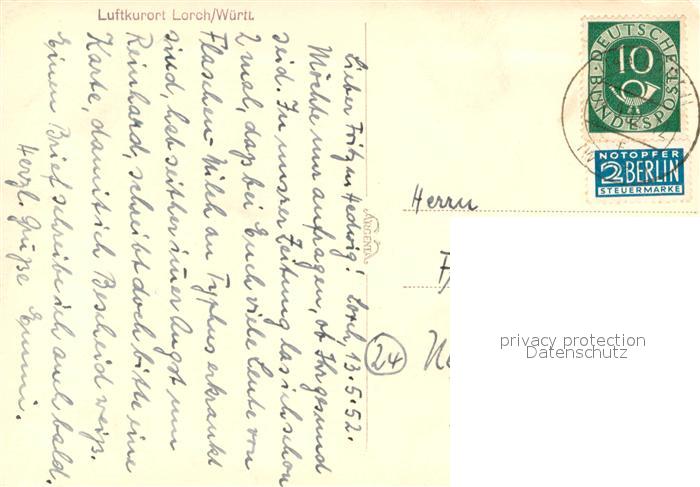 Luftkurort Lorch/Württ.
Lieber Fritz u Hedwig! Lorch, 13.5.52.
Möchte nur anfragen, ob Ihr gesund
seid. In unsrer Zeitung las ich schon
2 mal, dass bei Euch viele Leute von
Flaschen-Milch an Typhus erkrankt
sind, hab seither immer Angst um
Reinhard, schreibt doch bitte eine
Karte, damit ich Bescheid weiß.
Einen Brief schreibe ich auch bald.
Herzl. Grüße Emmi.
ARGENTA
DEUTSCHE
BUNDESPOST
10
NOTOPFER
2 BERLIN
STEUERMARKE
Herrn
24
privacy protection
Datenschutz